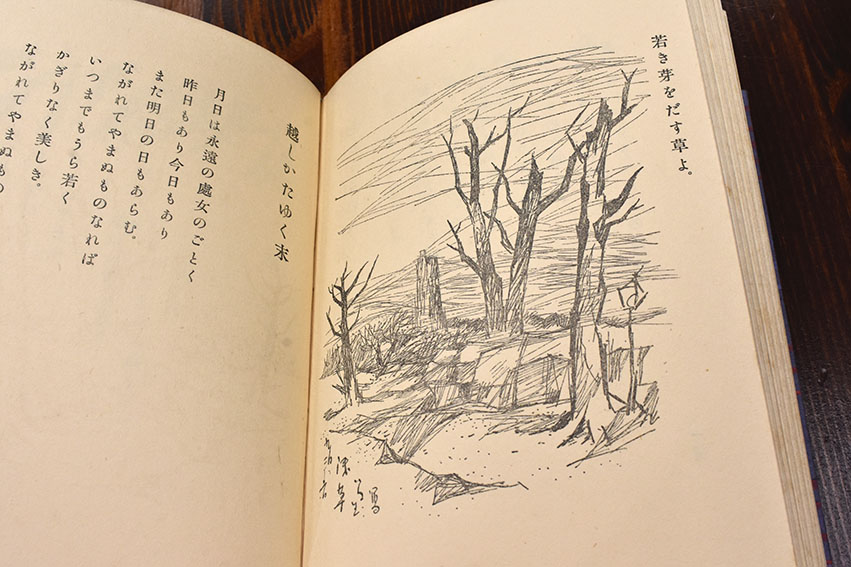 若き芽をだす草よ。
越しかたゆく末
月日は永遠の處女のごとく
昨日もあり今日もあり
また明日の日もあらむ。
ながれてやまぬものなれば
いつまでもうら若く
かぎりなく美しき。
ながれてやまぬもの